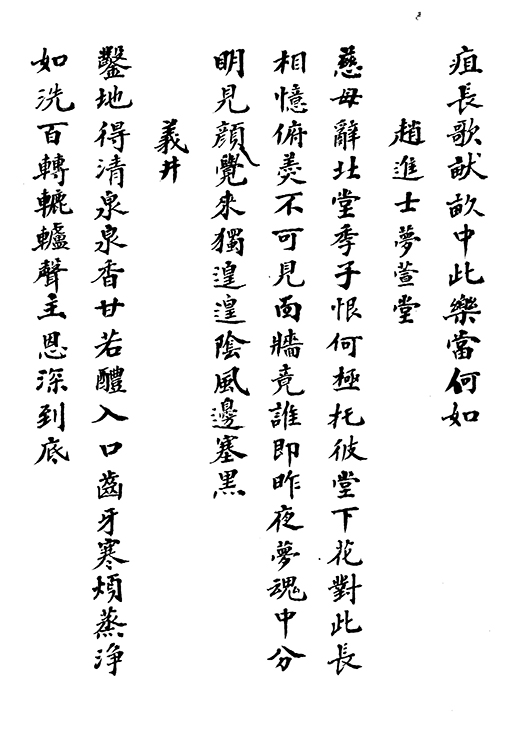 疽長歌畎畝中此樂當何如
趙進士夢萱堂
慈母辭北堂季子恨何極托彼堂下花對此長
相憶俯羹不可見面牆竟誰即昨夜夢魂中分
明見顏覺來獨遑遑陰風邊塞黑
義井
鑿地得清泉泉香甘若醴入口齒牙寒煩蒸浄
如洗百轉轆轤聲主恩深到底